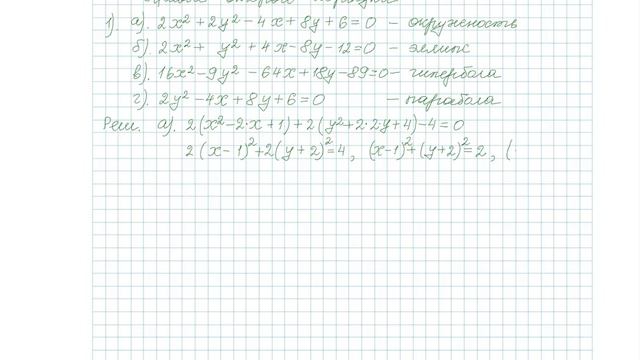 1). а). 2x² + 2y² - 4x + 8y + 6 = 0 - окружность
б). 2x² + y² + 4x - 8y - 12 = 0 - эллипс
в). 16x² - 9y² - 64x + 18y - 89 = 0 - гипербола
г). 2y² - 4x + 8y + 6 = 0 - парабола
Реш. а). 2(x² - 2·x + 1) + 2(y² + 2·2·y + 4) - 4 = 0
2(x - 1)² + 2(y + 2)² = 4, (x - 1)² + (y + 2)² = 2, (